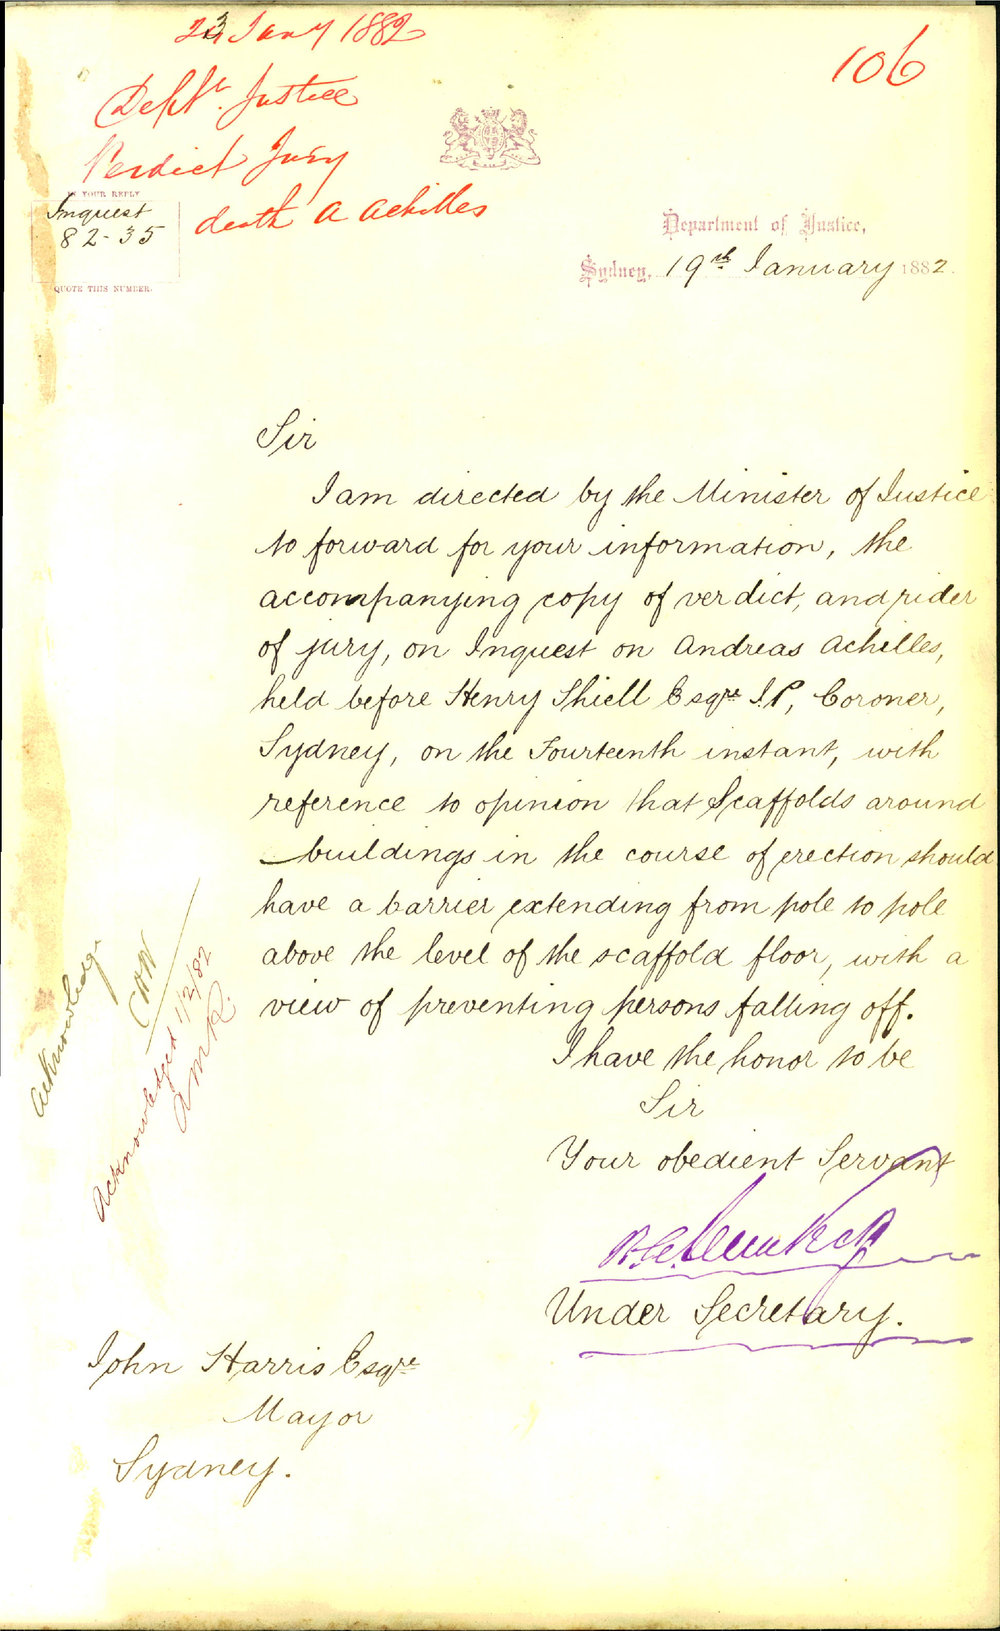 23 Jany 1882
106
Dept. Justice
Verdict Jury
death A Achilles
IN YOUR REPLY
Inquest
82-35
QUOTE THIS NUMBER.
Department of Justice,
Sydney, 19th January 1882.
Sir
I am directed by the Minister of Justice
to forward for your information, the
accompanying copy of verdict, and rider
of jury, on Inquest on Andreas Achilles,
held before Henry Shiell Esqre J.P, Coroner,
Sydney, on the Fourteenth instant, with
reference to opinion that Scaffolds around
buildings in the course of erection should
have a barrier extending from pole to pole
above the level of the scaffold floor, with a
view of preventing persons falling off.
I have the honor to be
Sir
Your obedient Servant
Under Secretary.
Acknowledge
Acknowledged 1/2/82
AMR
John Harris Esqre
Mayor
Sydney.